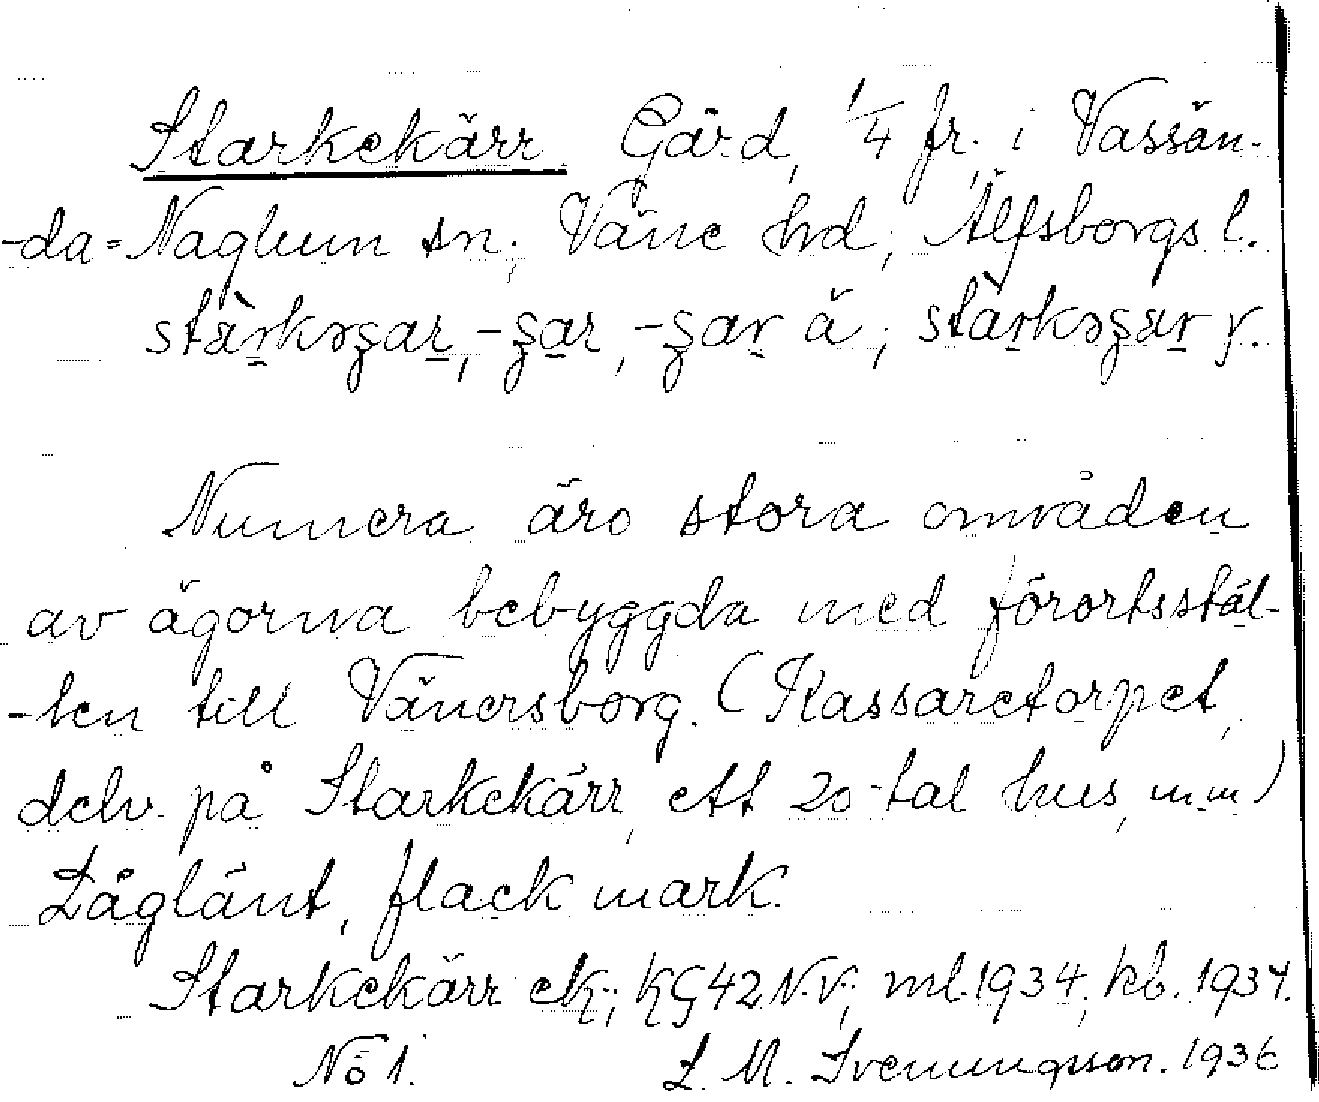 Starkekärr. Gård, 1/4 fr. i Vassän-
-da=Naglum sn; Väne hd; Älfsborgs l.
Numera äro stora områden
av ägorna bebyggda med förortsstäl-
-len till Vänersborg. (Kassaretorpet,
delv. på Starkekärr, ett 20-tal hus, m.m)
Låglänt, flack mark.
Starkekärr ek; KG 42 N.V; ml.1934, kb. 1934.
No 1. L. M. Svenungsson. 1936